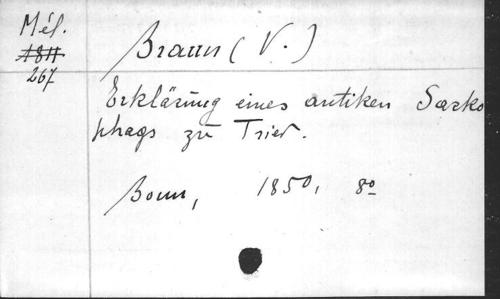 Mél.
1811
267
Braun (V.)
Erklärung eines antiken Sarko
phags zu Trier.
Bonn, 1850, 8º